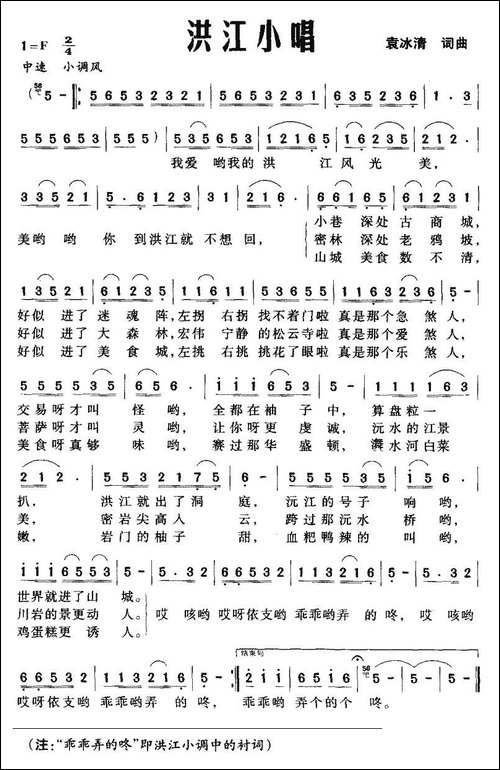 洪江小唱
1=F 2/4
袁冰清 词曲
中速 小调风
5 - 5653231 56532321 565323231 6236 1·3
555653 555) 535653 12165 16165 212·
我爱 哟我的洪 江风光 美,
33521 5·6123 31 216· 66165 61231
小巷 深处古商城,
美哟 哟 你 到洪江就 不想回, 密林 深处老鸦坡,
山城 美食数不清,
13521 612116 53655 111216 3236 5-
好似 进了 迷魂 阵,左拐 右拐 找不着门啦 真是那个急 煞人,
好似 进了 大森林,宏伟 宁静 的松云寺啦 真是那个爱 煞人,
好似 进了 美食城,左挑 右挑 挑花了眼啦 真是那个乐 煞人,
555535 656· iii653 5- 111163
交易呀才叫 怪哟, 全都在柚 子中, 算盘粒一
菩萨呀才叫 灵哟, 让你呀更 虔诚, 沅水的江景
美食呀真够 味哟, 赛过那华 盛顿, 㵲水河白菜
212· 5532 2175 6- 553235 232·
扒, 洪江就出了洞 庭, 沅江的号子 响哟,
美, 密岩尖高入 云, 跨过那沅水 桥哟,
嫩, 岩门的柚子 甜, 血粑鸭辣的 叫哟,
iii6553 5- 5·32 66532 113216 5- 5·32
世界就进了山 城。
川岩的景更动 人。 哎 咳哟 哎呀依支哟 乖乖哟弄 的咚, 哎 咳哟
鸡蛋糕更 诱 人。
结束句
66532 113213 5- 2ii 6i6 5- 5-
哎呀依支哟 乖乖哟弄 的 咚, 乖乖哟 弄个的个 咚。
(注:“乖乖弄的咚”即洪江小调中的衬词)